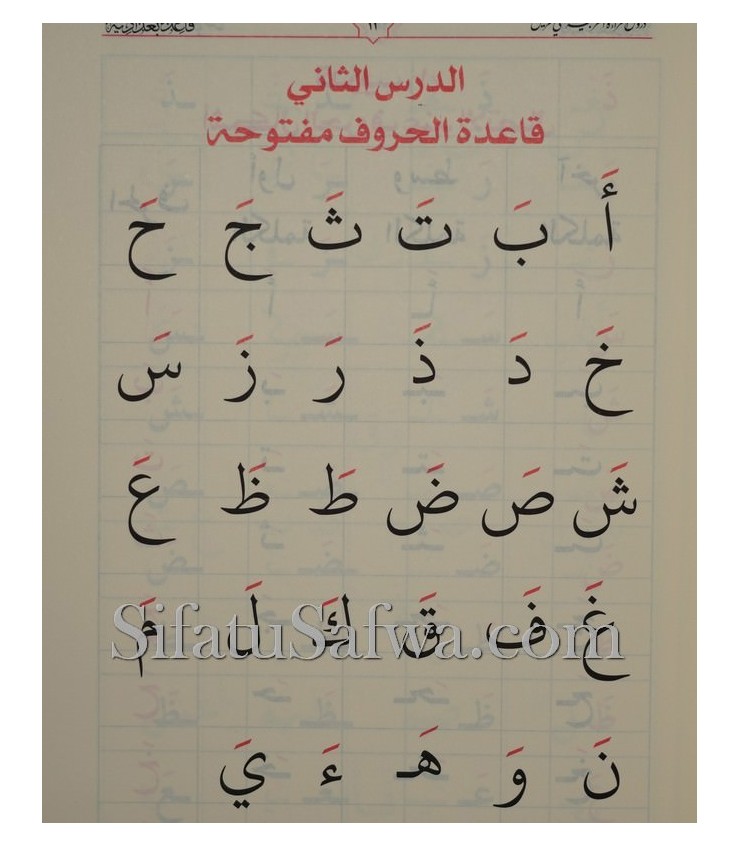 ١١
الدرس الثاني
قاعدة الحروف مفتوحة
أَ بَ تَ ثَ جَ حَ
خَ دَ ذَ رَ زَ سَ
شَ صَ ضَ طَ ظَ عَ
غَ فَ قَ كَ لَ مَ
SifatuSafwa.com
نَ وَ هَـ ءَ يَ